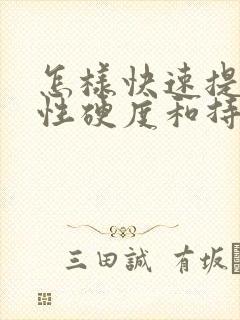 怎样快速提
性硬度和持
三田誠 有坂